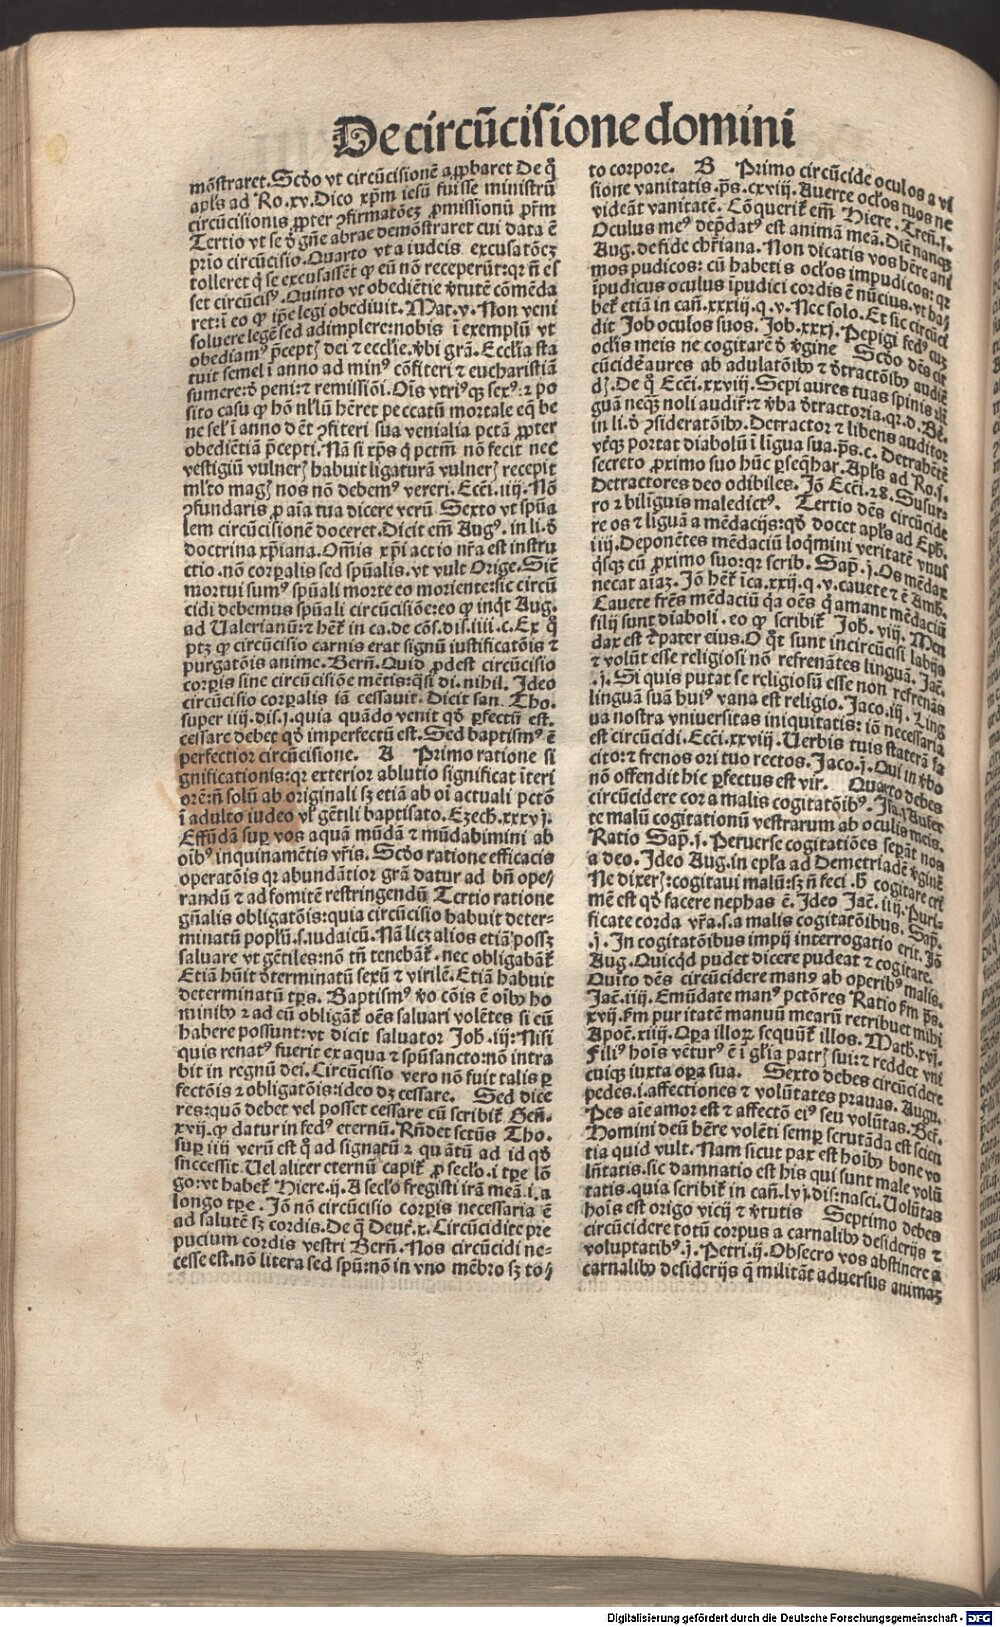 De circūcisione domini
mōstraret. Scḋo vt circūcisionē aꝓbaret De qͦ
apl̄s ad Ro. xv. Dico xp̄m iesū fuisse ministrū
circūcisionis ꝓpter ꝯfirmatōeꝫ ꝓmissionū pr̄m
Tertio vt se ꝺ̄ gn̄e abrae demōstraret cui data ē
pr̄io circūcisio. Quarto vt a iudeis excusatōeꝫ
tolleret q̇ se excusassēt ꝙ eū nō receperūt: qꝛ n̄ eſ
set circūcisꝰ. Quinto vt obediētie v̇tutē cōmēda
ret: ī eo ꝙ ip̄e legi obediuit. Mat. v. Non veni
soluere legē sed adimplere: nobis ī exemplū vt
obediamꝰ p̄ceptꝭ dei ⁊ ecclīe. v̇bi grā. Eccl̄ia sta
tuit semel ī anno ad minꝰ cōfiteri ⁊ eucharistiā
sumere: ꝺ̄ peni: ⁊ remissiōi. Oīs vtriꝰqꝫ sexꝰ: ⁊ po
sito casu ꝙ hō nl̄lū hēret peccatū mortale eqꝫ be
ne sel̓ ī anno dēt ꝯfiteri sua venialia pctā ꝓpter
obediētiā p̄cepti. Nā si xp̄s q̇ pctm̄ nō fecit nec
vestigiū vulnerꝭ habuit ligaturā vulnerꝭ recepit
ml̓to magꝭ nos nō debemꝰ vereri. Ecci̅. iiij. Nō
ꝯfundaris ꝓ aīa tua dicere verū Sexto vt sp̄ua
lem circūcisionē doceret. Dicit em̄ Augꝰ. in li. ꝺ̄
doctrina xp̄iana. Om̄is xp̄i actio nr̄a est instru
ctio. nō corꝑalis sed sp̄ualis. vt vult Orige. Sic̄
mortui sumꝰ sp̄uali morte eo moriente: sic circū
cidi debemus sp̄uali circūcisiōe: eo ꝙ inqͭ Aug.
ad Valerianū: ⁊ hēt̓ in ca. de cōs. dis. iiij. c. Ex qͦ
ptꝫ ꝙ circūcisio carnis erat signū iustificatōis ⁊
purgatōis anime. Bern̄. Quid ꝓdest circūcisio
corꝑis sine circūcisiōe mētis: q̇si di. nihil. Ideo
circūcisio corꝑalis iā cessauit. Dicit san. Tho.
super iiij. dis. j. quia quādo venit qḋ ꝑfectū est.
cessare debet qḋ imperfectū est. Sed baptismꝰ ē
perfectior circūcisione. A Primo ratione si
gnificationis: qꝛ exterior ablutio significat īteri
orē: n̄ solū ab originali sꝫ etiā ab oī actuali pctō
ī adulto iudeo vl̓ gētili baptisato. Ezech. xxxvj.
Effūdā suꝑ vos aquā mūdā ⁊ mūdabimini ab
oībꝰ inquinamētis vr̄is. Scḋo ratione efficacis
operatōis qꝛ abundātior grā datur ad bn̄ ope⸗
randū ⁊ ad fomitē restringendū Tertio ratione
gn̄alis obligatōis: quia circūcisio habuit deter⸗
minatū popl̄ū. s. iudaicū. Nā licꝫ alios etiā possꝫ
saluare vt gētiles: nō tn̄ tenebāt̓. nec obligabāt̓
Etiā hūit ꝺ̄terminatū sexū ⁊ virilē. Etiā habuit
determinatū tp̄s. Baptismꝰ v̇o cōis ē oībꝫ ho
minibꝫ ⁊ ad eū obligāt̓ oēs saluari volētes si eū
habere possunt: vt dicit saluator Joh. iij: Nisi
quis renatꝰ fuerit ex aqua ⁊ sp̄usancto: nō intra
bit in regnū dei. Circūcisio vero nō fuit talis ꝑ
fectōis ⁊ obligatōis: ideo dꝫ cessare. Sed dice
res: quō debet vel posset cessare cū scribit̓ Gen̄.
xvij. ꝙ datur in fedꝰ eternū. Rn̄det sctūs Tho.
suꝑ iiij verū est qͦ ad signatū ⁊ quātū ad id qḋ
successit. Uel aliter eternū capit̓ ꝓ secl̓o. i tꝑe lō
go: vt habet̓ Hiere. ij. A secl̓o fregisti irā meā. i. a
longo tꝑe. Jō nō circūcisio corꝑis necessaria ē
ad salutē sꝫ cordis. De q̇ Deut̓. x. Circūcidite pre
pucium cordis vestri Bern̄. Nos circūcidi ne⸗
cesse est. nō litera sed sp̄u: nō in vno mēbro sꝫ to⸗
to corpore. B Primo circūcide oculos a vi
sione vanitatis. p̄s. cxviij. Auerte ocl̓os tuos ne
videāt vanitatē. Cōquerit̓ em̄ Hiere. Tren̄. j.
Oculus meꝰ dep̄datꝰ est animā meā. Diē nanqꝫ
Aug. de fide chr̄iana. Non dicatis vos hēre ani
mos pudicos: cū habetis ocl̓os impudicos: qꝛ
īpudicus oculus īpudici cordis ē nūcius. vt ha⸗
bet̓ etiā in cañ. xxxij. q. v. Nec solo. Et sic circūci
dit Job oculos suos. Job. xxxj. Pepigi fedꝰ cuꝫ
ocl̓is meis ne cogitarē ꝺ̄ v̇gine Scḋo dēs cir
cūcidere aures ab adulatōibꝫ ⁊ ꝺ̄tractōibꝫ audiē
dꝭ. De q̇ Ecci̅. xxviij. Sepi aures tuas spinis lī
guā neqꝫ noli audir̓: ⁊ v̇ba ꝺ̄tractoria. qͣ. d. Be.
in li. ꝺ̄ ꝯsideratōibꝫ. Detractor ⁊ libens auditor
vt̓qꝫ portat diabolū ī ligua sua. p̄s. c. Detrahētē
secreto ꝓximo suo hūc ꝑseqͣbar. Apl̄s ad Ro. j.
Detractores deo odibiles. Jō Ecci̅. 28. Susur⸗
ro ⁊ bilīguis maledictꝰ. Tertio dēs circūcide
re os ⁊ liguā a mēdacijs: qḋ docet apl̄s ad Eph.
iiij. Deponētes mēdaciū loqͥmini veritatē vnus
qͥsqꝫ cū ꝓximo suo: qꝛ scrib. Sap̄. j. Os mēdax
necat aīaꝫ. Jō hēt̓ ī ca. xxij. q. v. cauete ⁊ ē Amb.
Cauete fr̄es mēdaciū qͣ oēs q̇ amant mēdaciū
filij sunt diaboli. eo ꝙ scribit̓ Joh. viij. Men
dax est ⁊ pater eius. O qͦt sunt incircūcisi labijs
⁊ volūt esse religiosi nō refrenātes linguā. Jac̄.
. j. Si quis putat se religiosū esse non refrenās
linguā suā huiꝰ vana est religio. Jaco. iij. Ling
ua nostra vniuersitas iniquitatis: iō necessaria
est circūcidi. Ecci̅. xxviij. Uerbis tuis staterā fa
cito: ⁊ frenos ori tuo rectos. Jaco. j. Qui in v̇bo
nō offendit hic ꝑfectus est vir. Quarto debes
circūcidere cor a malis cogitatōibꝰ. Jsa. j Aufer
te malū cogitationū vestrarum ab oculis meis.
Ratio Sap̄. j. Peruerse cogitatiōes sepāt nos
a deo. Ideo Aug. in epl̓a ad Demetriadē v̇ginē
Ne dixerꝭ: cogitaui malū: sꝫ n̄ feci. hͦ cogitare cri
mē est qḋ facere nephas ē. Ideo Jac̄. iiij. Puri⸗
ficate corda vr̄a. s. a malis cogitatōibus. Sap̄.
. j. In cogitatōibus impij interrogatio erit. Jō
Aug. Quicqͥd pudet dicere pudeat ⁊ cogitare.
Quito dēs circūcidere manꝰ ab operibꝰ malis.
Jac̄. iiij. Emūdate manꝰ pctōres Ratio ẜm p̄s.
xvij. ẜm puritatē manuū mearū retribuet mihi
Apoc̄. xiiij. Oꝑa illoꝝ sequūt̓ illos. Math. xvj.
Filiꝰ hoīs vēturꝰ ē ī gl̓ia patrꝭ sui: ⁊ reddet vni
cuiqꝫ iuxta oꝑa sua. Sexto debes circūcidere
pedes. i. affectiones ⁊ volūtates prauas. Augu.
Pes aīe amor est ⁊ affectō eiꝰ seu volūtas. Ber̓.
Homini deū hēre volēti semꝑ scrutāda est scien
tia quid vult. Nam sicut pax est hoībꝫ bone vo
lūtatis. sic damnatio est his qui sunt male volū
tatis. quia scribit̓ in cañ. lvj. dis: nasci. Uolūtas
hoīs est origo vicij ⁊ v̇tutis Septimo debes
circūcidere totū corpus a carnalibꝫ desiderijs ⁊
voluptatibꝰ. j. Petri. ij. Obsecro vos abstinere a
carnalibꝫ desiderijs q̄ militāt aduersus animaꝫ
Digitalisierung gefördert durch die Deutsche Forschungsgemeinschaft - DFG